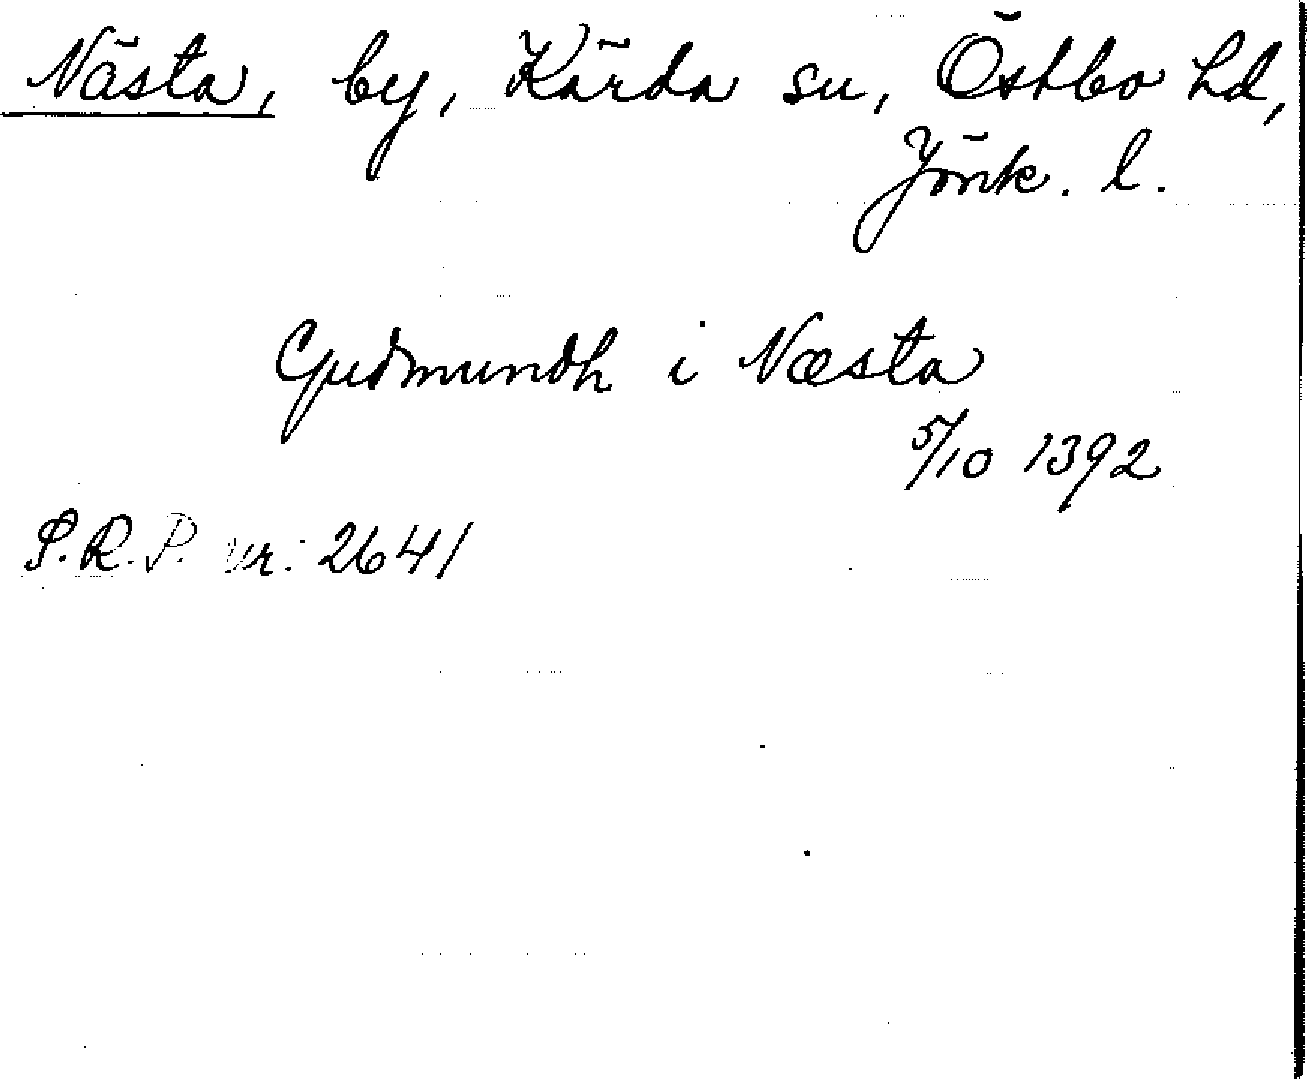 Nästa, by, Kärda sn, Östbo hd,
Jönk. l.
Gudmundh i Næsta
5/10 1392
S.R.P. nr: 2641